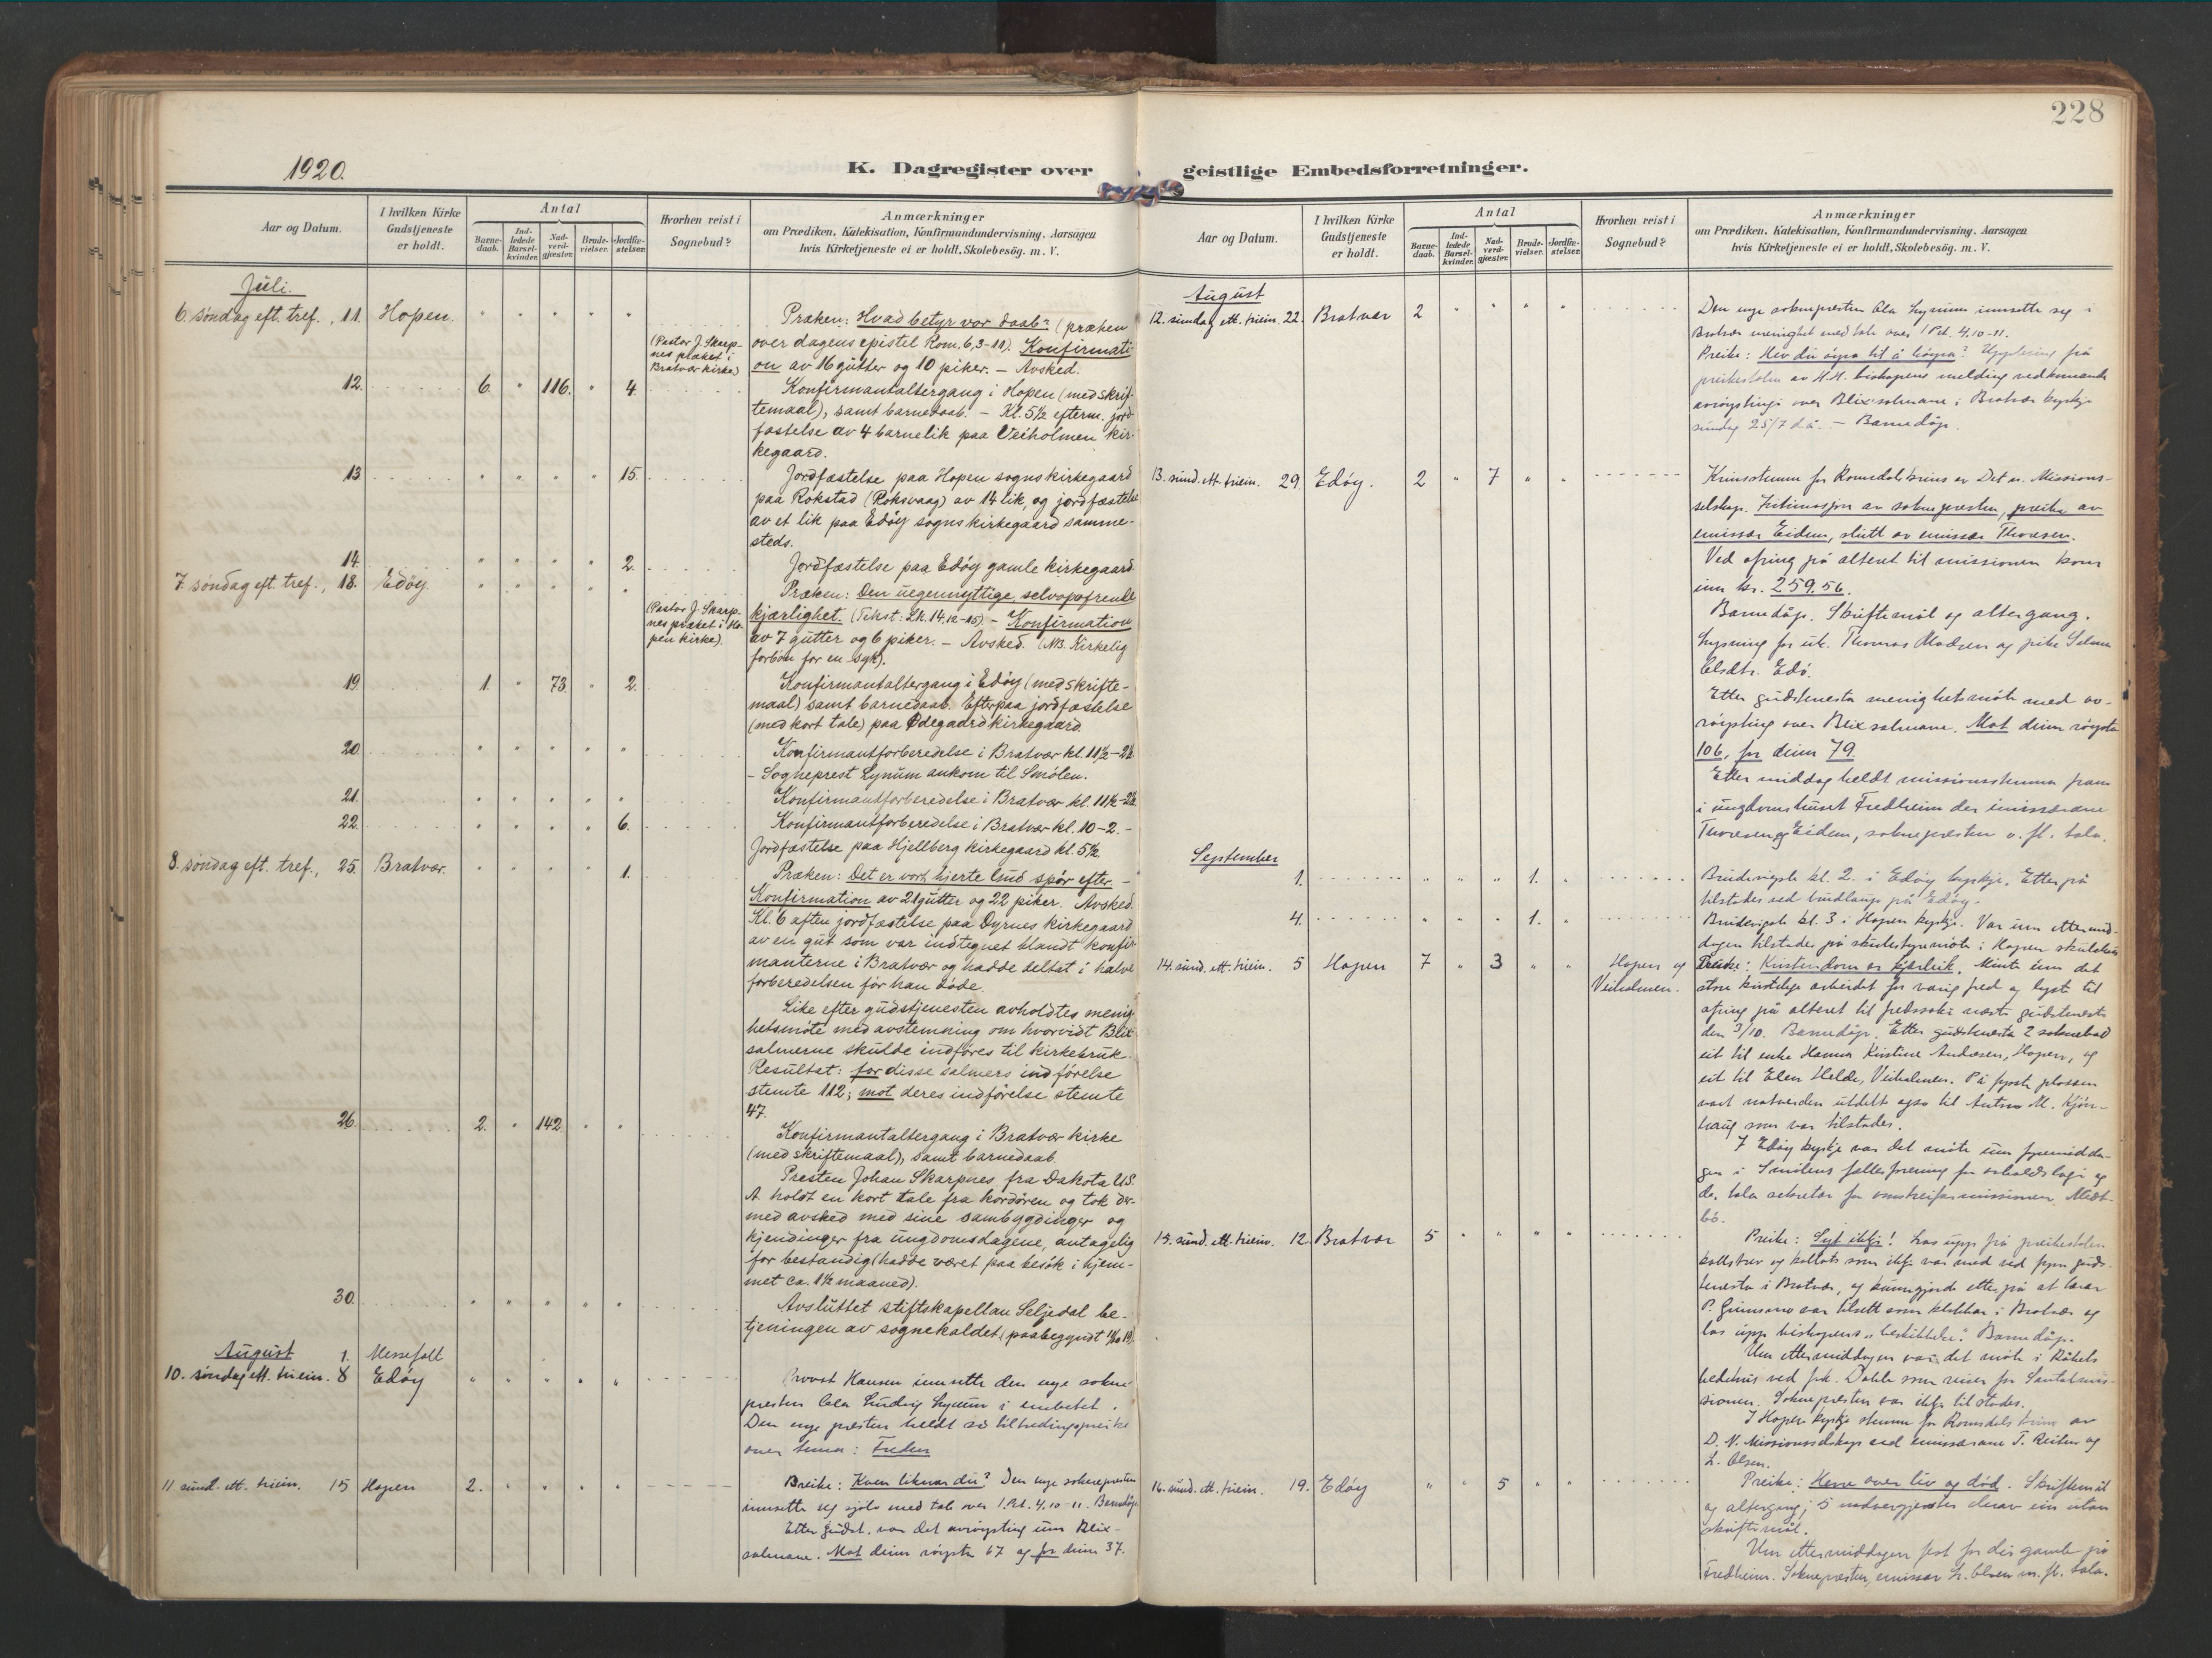 228
1920.
K. Dagregister over geistlige Embedsforretninger.
Aar og Datum.
I hvilken Kirke Gudstjeneste er holdt.
Antal
Barnedaab.
Indledede Barselkvinder.
Nadverdgjæster.
Brudevielser.
Jordfæstelser.
Hvorhen reist i Sognebud?
Anmærkninger
om Prædiken, Katekisation, Konfirmandundervisning, Aarsagen
hvis Kirketjeneste ei er holdt, Skolebesög. m. V.
Juli.
6. søndag eft. tref., 11. Hopen. " " " " "
(Pastor J. Skarp-
nes præket i
Bratvær kirke)
Præken: Hvad betyr vor daab? (præken
over dagens epistel Rom. 6,3-11). Konfirmati
on av 16 gutter og 10 piker. — Avsked.
12. 6. " 116. " 4.
Konfirmantaltergang i Hopen (med skrif-
temaal), samt barnedaab. — Kl. 5½ efterm. jord-
fæstelse av 4 barnelik paa Veiholmen kir-
kegaard.
13. " " " " 15.
Jordfæstelse paa Hopen sogns kirkegaard
paa Rokstad (Roksvaag) av 14 lik, og jordfæstelse
av et lik paa Edøy sogns kirkegaard samme-
steds.
14. " " " " 2.
Jordfæstelse paa Edøy gamle kirkegaard.
7. søndag eft. tref., 18. Edøy. " " " " "
(Pastor J. Skarp-
nes præket i Ho-
pen kirke).
Præken: Den uegennyttige, selvopofrende
kjærlighet. (Tekst: Lk. 14,12-15). — Konfirmation
av 7 gutter og 6 piker. — Avsked. (NB. Kirkelig
forbøn for en syk).
19. 1. " 73. " 2.
Konfirmantaltergang i Edøy (med skrifte-
maal) samt barnedaab. Efterpaa jordfæstelse
(med kort tale) paa Ødegaard kirkegaard.
20. " " " " "
Konfirmantforberedelse i Bratvær kl. 11½-2½
- Sogneprest Lynum ankom til Smølen.
21. " " " " "
Konfirmantforberedelse i Bratvær kl. 11½-2½
22. " " " " 6.
Konfirmantforberedelse i Bratvær kl. 10-2. -
Jordfæstelse paa Hjellberg kirkegaard kl. 5½.
8. søndag eft. tref., 25. Bratvær. " " " " 1.
Præken: Det er vort hjerte Gud spør efter. —
Konfirmation av 21 gutter og 22 piker. Avsked.
Kl. 6 aften jordfæstelse paa Dyrnes kirkegaard
av en gut som var indtegnet blandt konfir-
manterne i Bratvær og hadde deltat i halve
forberedelsen før han døde.
Like efter gudstjenesten avholdtes menig-
hetsmøte med avstemning om hvorvidt Blix
salmerne skulde indføres til kirkebruk.
Resultat: for disse salmers indførelse
stemte 112; mot deres indførelse stemte
47.
26. 2. " 142. " "
Konfirmantaltergang i Bratvær kirke
(med skriftemaal), samt barnedaab.
Presten Johan Skarpnes fra Dakota U.S.
A. holdt en kort tale fra kordøren og tok der-
med avsked med sine sambygdinger og
kjendinger fra ungdomsdagene, antagelig
for bestandig (hadde været paa besøk i hjem-
met ca. 1½ maaned).
30. " " " " "
Avsluttet stiftskapellan Seljedal be-
tjeningen av sognekaldet (paabegyndt
August 1. Messefall
10. søndag ett. triein. 8 Edøy " " " " "
Provst Hansen innsette den nye sokne
presten Ola Ludvig Lynum i embetet.
Den nye presten heldt so tiltredingspreike
over temaet: Freden
11. sund. ett. triein. 15 Hopen 2. " " " "
Preike: Kven liknar du? Den nye soknepresten
innsette seg sjølv med tale over 1. Pet. 4,10-11. Barnedåp.
Etter gudst. var det avrøysting um Blix-
salmane. Mot deim røysta 67 og for deim 37.
August
12. sundag ett. triein. 22. Bratvær 2 " " " "
Den nye soknepresten Ola Lynum innsette seg i
Bratvær menighet med tale over 1 Pet. 4,10-11.
Preike: Hev du øyra til å høyra? Upplesing frå
preikestolen av H.H. biskopens melding vedkomande
avrøystingi over Blixsalmane i Bratvær kyrkje
sundag 25/7 d.å. — Barnedåp.
13. sund. ett. triein. 29. Edøy. 2 " 7 " "
Krinsstemna for Romsdal krins av Det n. Missions-
selskap. Intimasjon av soknepresten, preike av
emissær Eidem, slutt av emissær Thoresen.
Ved ofring på alteret til missionen kom
inn kr. 259.56.
Barnedåp. Skriftemål og altergang.
Lysning for uk. Thomas Madsen og pike Selma
Olsdtr. Edø.
Etter gudstenesta menighetsmøte med av-
røysting over Blix salmane. Mot deim røysta
106, for deim 79.
Etter middag heldt missionsstemna fram
i ungdomshuset Fredheim der emissærane
Thoresen og Eidem, soknepresten o. fl. tala.
September
1. " " " 1. "
Brudevigsle kl. 2. i Edøy kyrkje. Etterpå
tilstades ved brudlaup på Edøy.
4. " " " 1. "
Brudevigsle kl. 3 i Hopen kyrkje. Var um ettermid-
dagen tilstades på skulestyremøte i Hopen skulehus
14. sund. ett. triein. 5 Hopen 7 " 3 " "
Hopen og
Veiholmen.
Preike: Kristendom er kjærleik. Minte um det
store kristelege arbeidet for varig fred og lyste til
ofring på alteret til fredssaki næste gudstenesta
den 3/10. Barnedåp. Etter gudstenesta 2 soknebod
eit til enke Hanna Kristine Andersen, Hopen, og
eit til Elen Helde, Veiholmen. På fyrste plassen
vart natverden utdelt ogso til Anton M. Kjøn-
haug som var tilstades.
I Edøy kyrkje var det møte um fyremidda-
gen i Smølens fellesforening for
da tala sekretær for omstreifarmissionen,
bø.
15. sund. ett. triein. 12. Bratvær 5 " " " "
Preike: Syt ikkje! Las upp frå preikestolen
kallsbrev og kollats som ikkje var med ved fyrre guds-
tenesta i Bratvær, og kunngjorde etterpå at lærar
P. Grimsmo var tilsett som klokkar i Bratvær og
las upp biskopens "beskikkelse". Barnedåp.
Um ettermiddagen var det møte i Råkels
bedehus ved frk. Dahle som reiser for Santalmis-
sionen. Soknepresten var ikkje tilstades.
I Hopen kyrkje stemne for Romsdals krins av
D. N. Missionsselskap ved emissærane T. Reitan og
L. Olsen.
16. sund. ett. triein. 19. Edøy " " 5 " "
Preike: Herre over liv og død. Skriftemål
og altergang; 5 nadvergjester derav ein utan
skriftemål.
Um ettermiddagen fest for dei gamle på
Fredheim. Soknepresten, emissær L. Olsen m. fl. tala.